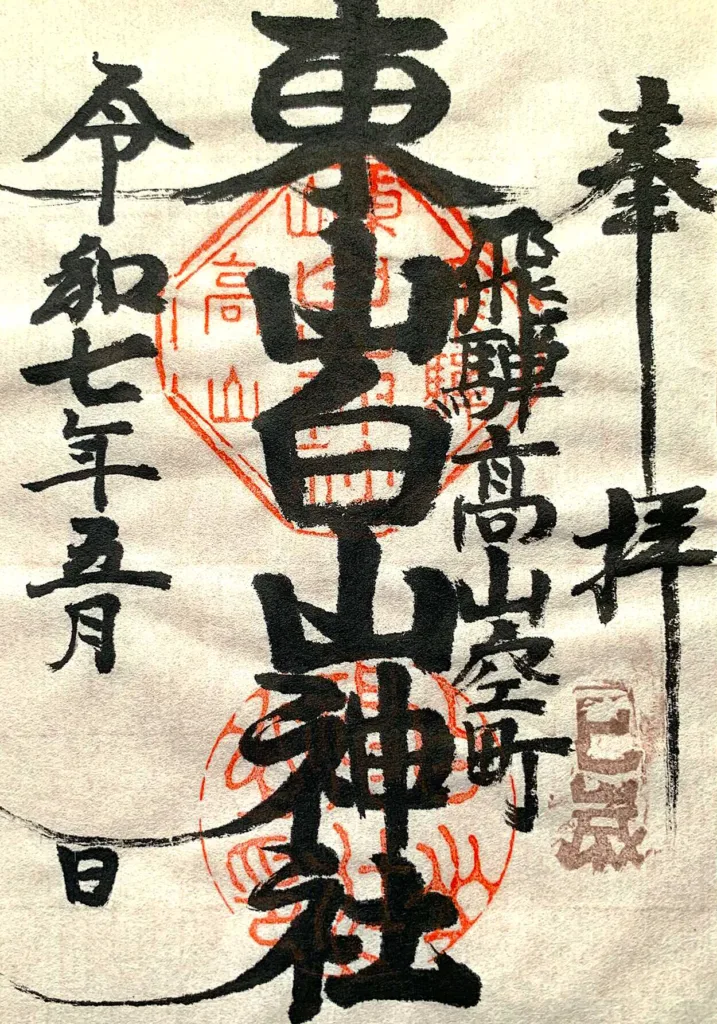 奉拝
飛騨高山空町
東山白山神社
令和七年五月
日